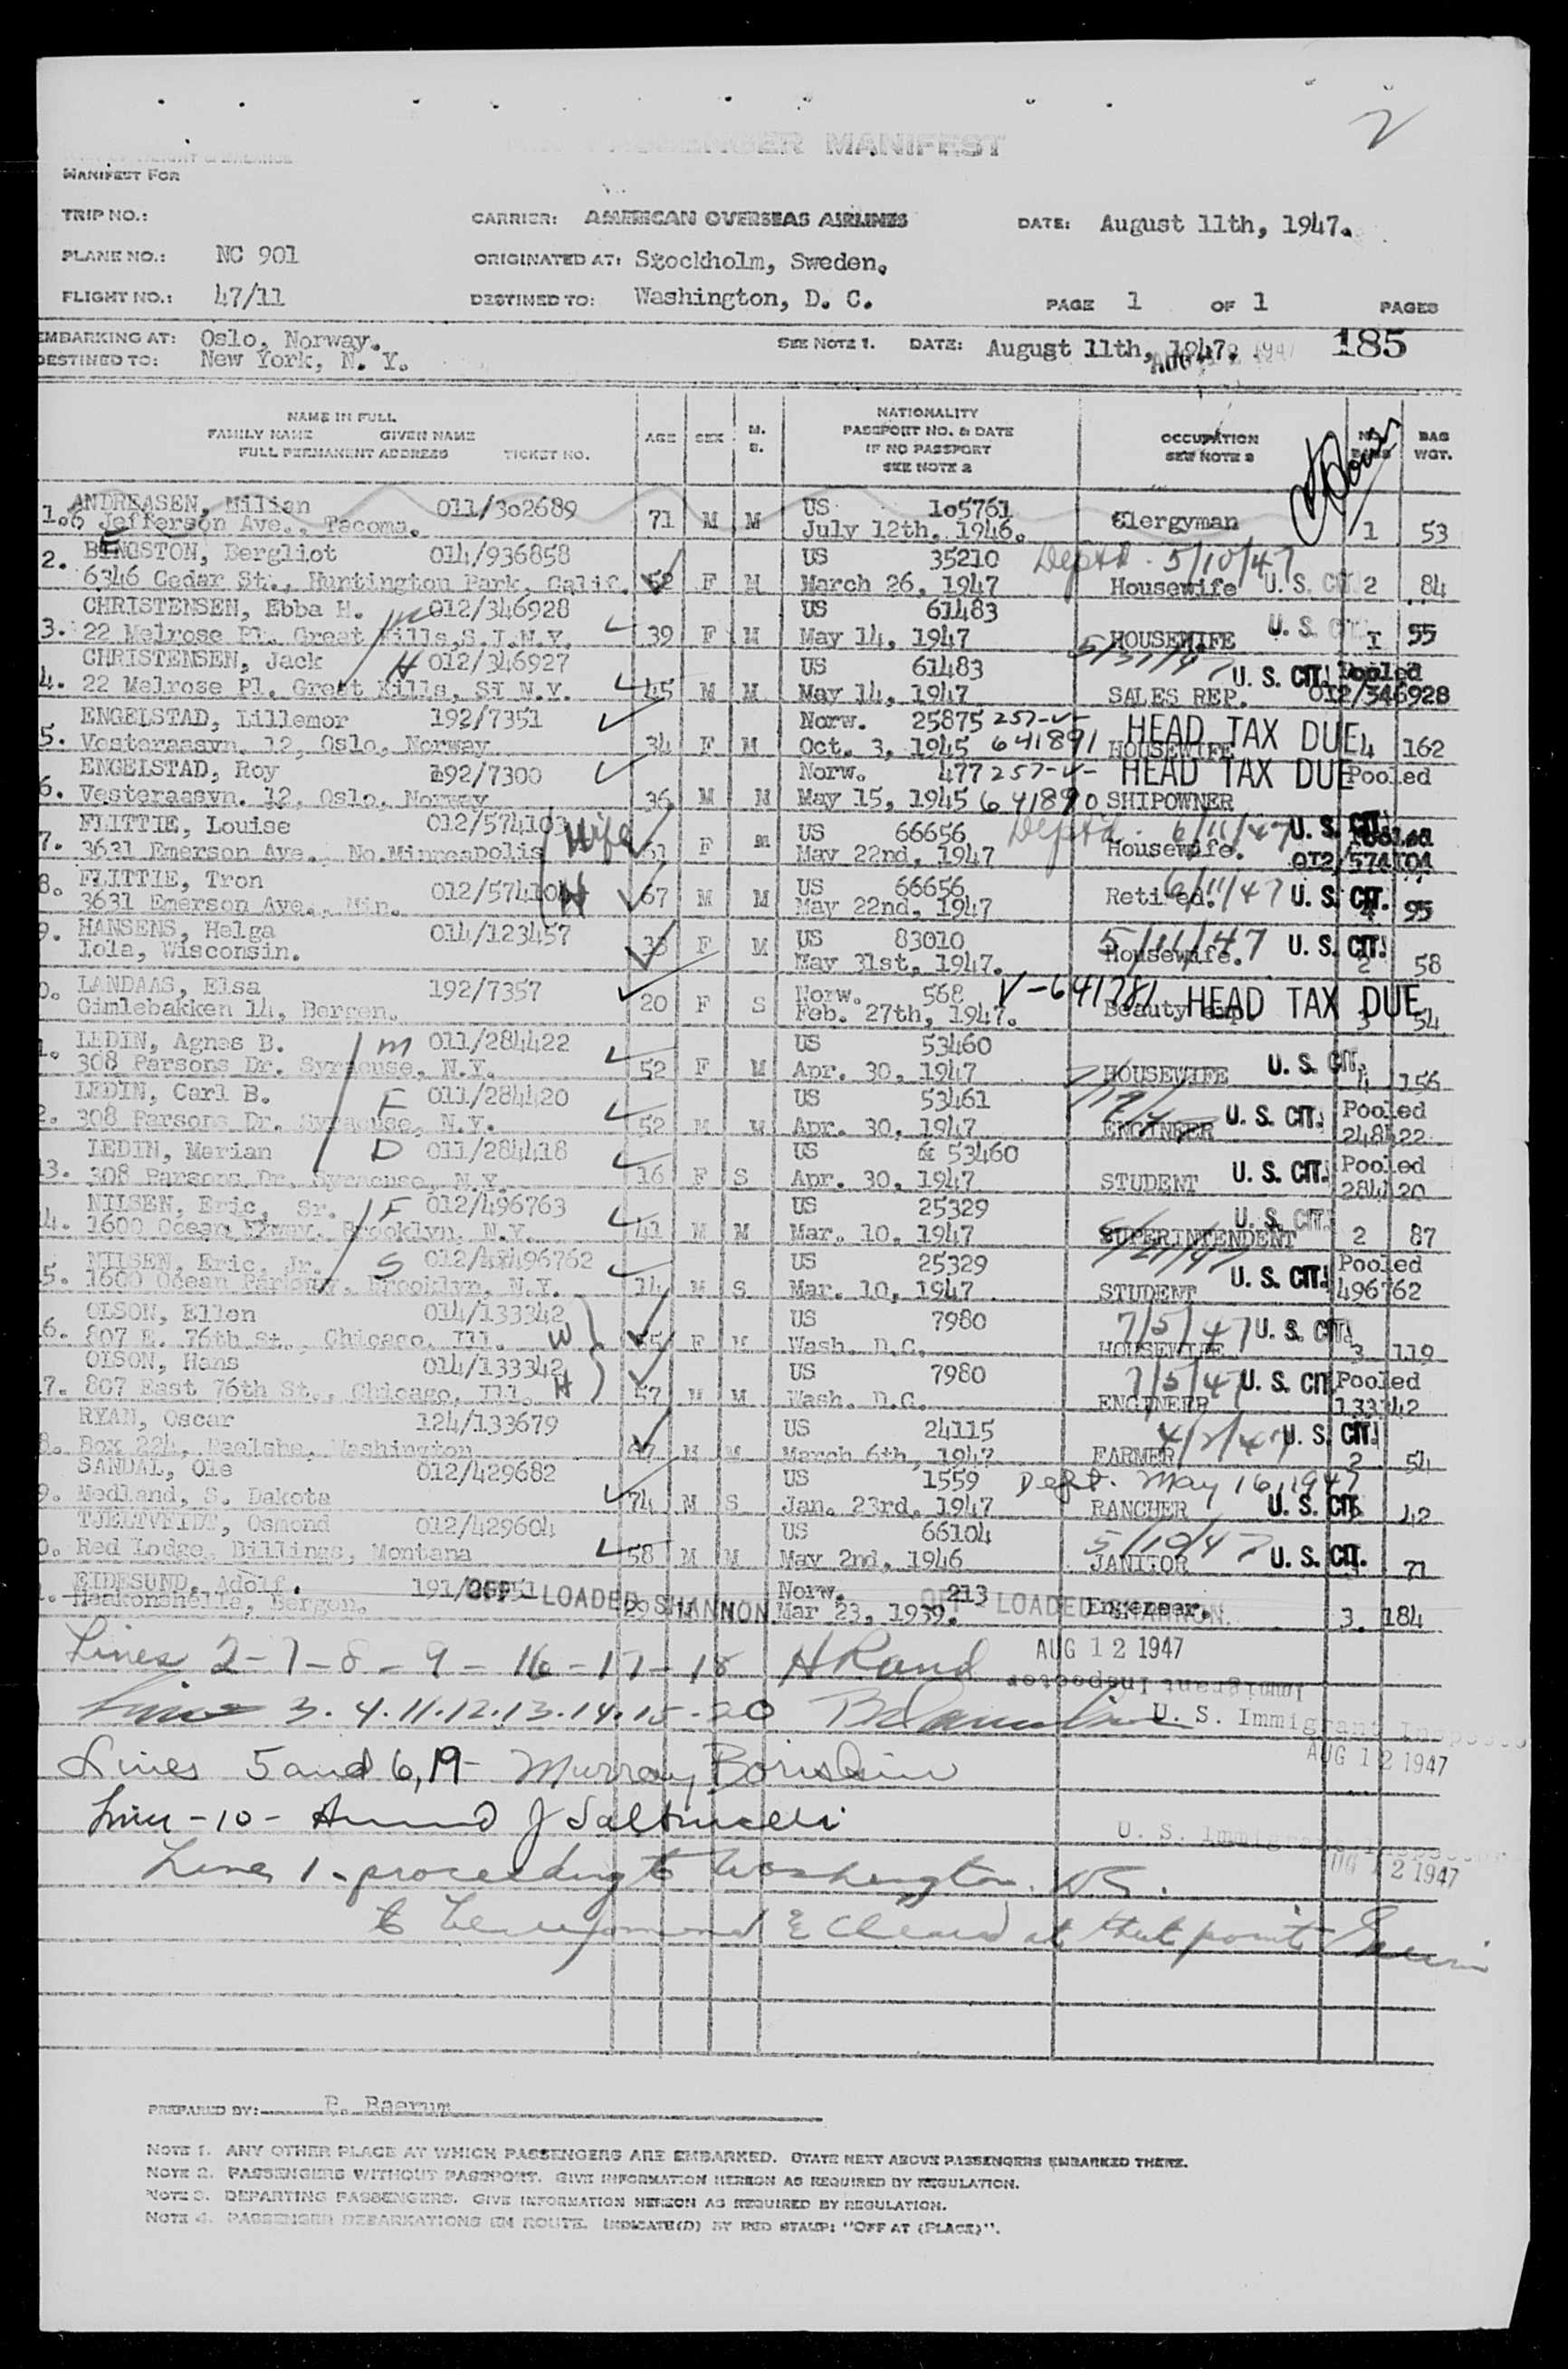 2
PASSENGER MANIFEST
MANIFEST FOR
TRIP NO.: CARRIER: AMERICAN OVERSEAS AIRLINES DATE: August 11th, 1947.
PLANE NO.: NC 901 ORIGINATED AT: Stockholm, Sweden.
FLIGHT NO.: 47/11 DESTINED TO: Washington, D. C. PAGE 1 OF 1 PAGES
EMBARKING AT: Oslo, Norway. SEE NOTE 1. DATE: August 11th, 1947. 185
DESTINED TO: New York, N. Y.
NAME IN FULL
FAMILY NAME GIVEN NAME
FULL PERMANENT ADDRESS TICKET NO.
AGE SEX M. S.
NATIONALITY
PASSPORT NO. & DATE
IF NO PASSPORT
SEE NOTE 2
OCCUPATION
SEE NOTE 3
BAG WGT.
ANDREASEN, Milian 011/302689 US 105761
1. Jefferson Ave., Tacoma. 71 M M July 12th, 1946. Clergyman 1 53
BINGSTON, Bergliot 014/936858 US 35210 Dept'd. 5/10/47
2. 6346 Cedar St., Huntington Park, Calif. 52 F M March 26, 1947 Housewife U. S. CIT. 2 84
CHRISTENSEN, Ebba H. m 012/346928 US 61483
3. 22 Melrose Pl. Great Kills, S.I.N.Y. 39 F M May 14, 1947 HOUSEWIFE U. S. CIT. 1 55
CHRISTENSEN, Jack H 012/346927 US 61483 5/31/47 U. S. CIT. Pooled
4. 22 Melrose Pl. Great Kills, SI N.Y. 45 M M May 14, 1947 SALES REP. 012/346928
ENGELSTAD, Lillemor 192/7351 Norw. 25875 257-V- HEAD TAX DUE
5. Vesteraasvn. 12, Oslo, Norway 34 F M Oct. 3, 1945 641891 HOUSEWIFE 4 162
ENGELSTAD, Roy 192/7300 Norw. 477 257-V- HEAD TAX DUE Pooled
6. Vesteraasvn. 12, Oslo, Norway 36 M M May 15, 1945 641890 SHIPOWNER
FLITTIE, Louise 012/574103 Wife US 66656 Dept'd. 6/11/47 U. S. CIT. Pooled
7. 3631 Emerson Ave., No.Minneapolis 61 F M May 22nd, 1947 Housewife. 012/574104
FLITTIE, Tron 012/574104 H US 66656 6/11/47 U. S. CIT.
8. 3631 Emerson Ave., Min. 67 M M May 22nd, 1947 Retired. 95
HANSENS, Helga 014/123457 US 83010 5/11/47 U. S. CIT.
9. Iola, Wisconsin. F M May 31st, 1947. Housewife. 2 58
LANDAAS, Elsa 192/7357 Norw. 568 V-641781 HEAD TAX DUE
0. Gimlebakken 14, Bergen. 20 F S Feb. 27th, 1947. Beauty exp. 3 54
LEDIN, Agnes B. m 011/284422 US 53460 U. S. CIT.
1. 308 Parsons Dr. Syracuse, N.Y. 52 F M Apr. 30, 1947 HOUSEWIFE 4 156
LEDIN, Carl B. F 011/284420 US 53461 U. S. CIT. Pooled
2. 308 Parsons Dr. Syracuse, N.Y. 52 M M Apr. 30, 1947 ENGINEER 248422
LEDIN, Marian D 011/284418 US 53460 U. S. CIT. Pooled
3. 308 Parsons Dr. Syracuse, N.Y. 16 F S Apr. 30, 1947 STUDENT 284420
NILSEN, Eric, Sr. F 012/496763 US 25329 U. S. CIT.
4. 1600 Ocean Pkway, Brooklyn, N.Y. 41 M M Mar. 10, 1947 SUPERINTENDENT 2 87
NILSEN, Eric, Jr. S 012/496762 US 25329 U. S. CIT. Pooled
5. 1600 Ocean Parkway, Brooklyn, N.Y. 14 M S Mar. 10, 1947 STUDENT 496762
OLSON, Ellen 014/133342 US 7980 7/5/47 U. S. CIT.
6. 807 E. 76th St., Chicago, Ill. W 55 F M Wash. D.C. HOUSEWIFE 3 119
OLSON, Hans 014/133342 US 7980 7/5/47 U. S. CIT. Pooled
7. 807 East 76th St., Chicago, Ill. H 57 M M Wash. D.C. ENGINEER 133342
RYAN, Oscar 124/133679 US 24115 U. S. CIT.
8. Box 224, Washington 67 M M March 6th, 1947 FARMER 2 54
SANDAL, Ole 012/429682 US 1559 Dept. May 16, 1947
9. Medland, S. Dakota 74 M S Jan. 23rd, 1947 RANCHER U. S. CIT. 42
TJELTVEIDT, Osmond 012/429604 US 66104 5/10/47
0. Red Lodge, Billings, Montana 58 M M May 2nd, 1946 JANITOR U. S. CIT. 71
EIDESUND, Adolf. OFF-LOADED SHANNON Norw. 213 OFF LOADED SHANNON
Haakonshella, Bergen. Mar 23, 1939. Engeneer. 3. 184
Lines 2-7-8-9-16-17-18 H Rand AUG 12 1947
Immigrant Inspector
Lines 3.4.11.12.13.14.15.20 U. S. Immigrant Inspector
AUG 12 1947
Lines 5 and 6, 19- Murray
Line -10-
U. S. Immigrant Inspector
AUG 12 1947
Line 1. proceeding to Washington.
to be examined & cleared at that point
PREPARED BY: Baerum
NOTE 1. ANY OTHER PLACE AT WHICH PASSENGERS ARE EMBARKED. STATE NEXT ABOVE PASSENGERS EMBARKED THERE.
NOTE 2. PASSENGERS WITHOUT PASSPORT. GIVE INFORMATION HEREON AS REQUIRED BY REGULATION.
NOTE 3. DEPARTING PASSENGERS. GIVE INFORMATION HEREON AS REQUIRED BY REGULATION.
NOTE 4. PASSENGER DEBARKATIONS EN ROUTE. INDICATE(D) BY RED STAMP: "OFF AT (PLACE)".